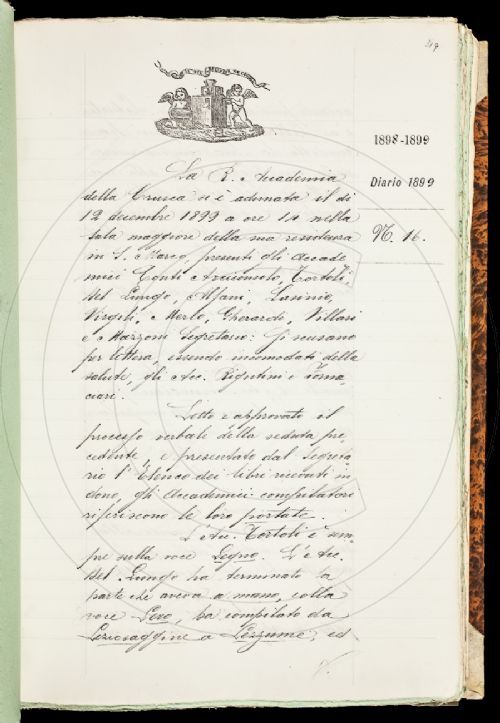 1898-1899
Diario 1899
N. 16.
La R. Accademia
della Crusca si è adunata il dì
12 decembre 1899 a ore 14 nella
sala maggiore della sua residenza
in S. Marco, presenti gli Accade
mici Conti Arciconsolo, Tortoli,
del Lungo, Alfani, Lasinio,
Virgilj, Merlo, Gherardi, Villari
e Mazzoni Segretario: si scusano
per lettera, essendo incomodati della
salute, gli Acc. Rigutini e Torna,
ciari.
Letto e approvato il
processo verbale della seduta pre,
cedente, e presentato dal Segreta
rio l'Elenco dei libri ricevuti in
dono, gli Accademici compilatori
riferiscono le loro portate.
L'Acc. Tortoli è sem,
pre sulla voce Legno. L'Acc.
del Lungo ha terminato la
parte che aveva a mano, colla
voce Lezo, ha compilato da
Leziosaggine a Lezzume, ed